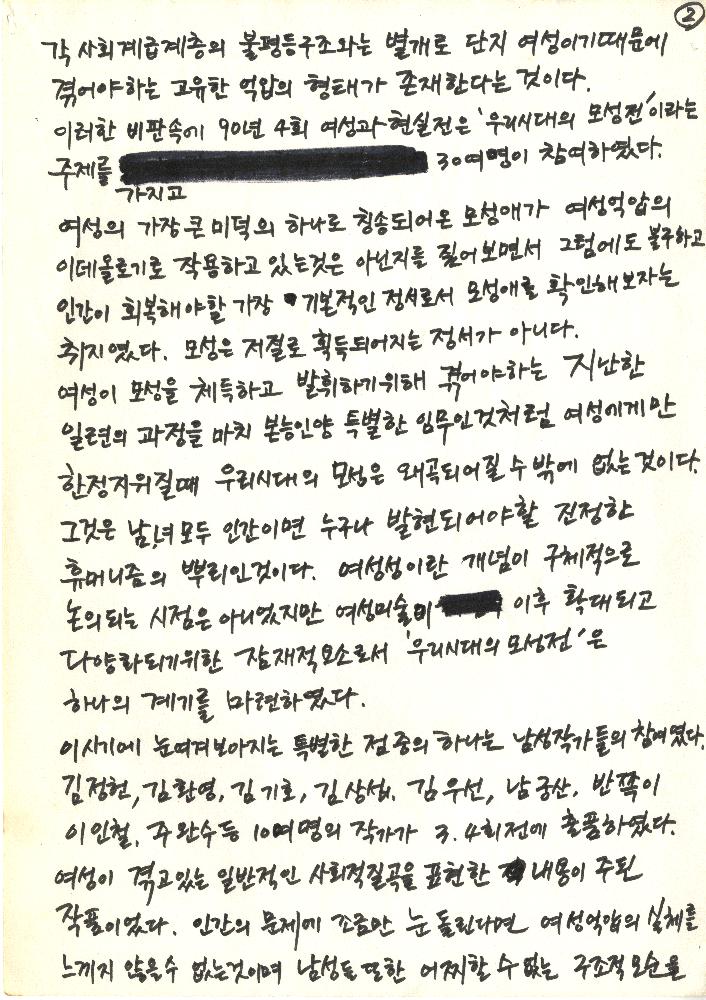 ②
각 사회계급계층의 불평등구조와는 별개로 단지 여성이기때문에
겪어야하는 고유한 억압의 형태가 존재한다는 것이다.
이러한 비판속에 90년 4회 여성과 현실전은 '우리시대의 모성전'이라는
주제를 30여명이 참여하였다.
가지고
여성의 가장 큰 미덕의 하나로 칭송되어온 모성애가 여성억압의
이데올로기로 작용하고 있는것은 아닌지를 짚어보면서 그럼에도 불구하고
인간이 회복해야할 가장 기본적인 정서로서 모성애를 확인해보자는
취지였다. 모성은 저절로 획득되어지는 정서가 아니다.
여성이 모성을 체득하고 발휘하기위해 겪어야하는 지난한
일련의 과정을 마치 본능인양 특별한 임무인것처럼 여성에게만
한정지워질때 우리시대의 모성은 왜곡되어질 수 밖에 없는것이다.
그것은 남,녀 모두 인간이면 누구나 발현되어야할 진정한
휴머니즘의 뿌리인것이다. 여성성이란 개념이 구체적으로
논의되는 시점은 아니었지만 여성미술이 이후 확대되고
다양화되기위한 잠재적요소로서 '우리시대의 모성전'은
하나의 계기를 마련하였다.
이시기에 눈여겨보아지는 특별한 점 중의 하나는 남성작가들의 참여였다.
김정헌, 김환영, 김기호, 김상섭, 김우선, 남궁산, 반쪽이
이인철, 주완수등 10여명의 작가가 3.4회전에 출품하였다.
여성이 겪고있는 일반적인 사회적질곡을 표현한 내용이 주된
작품이었다. 인간의 문제에 조금만 눈 돌린다면 여성억압의 실체를
느끼지 않을수 없는것이며 남성들 또한 어찌할 수 없는 구조적모순을